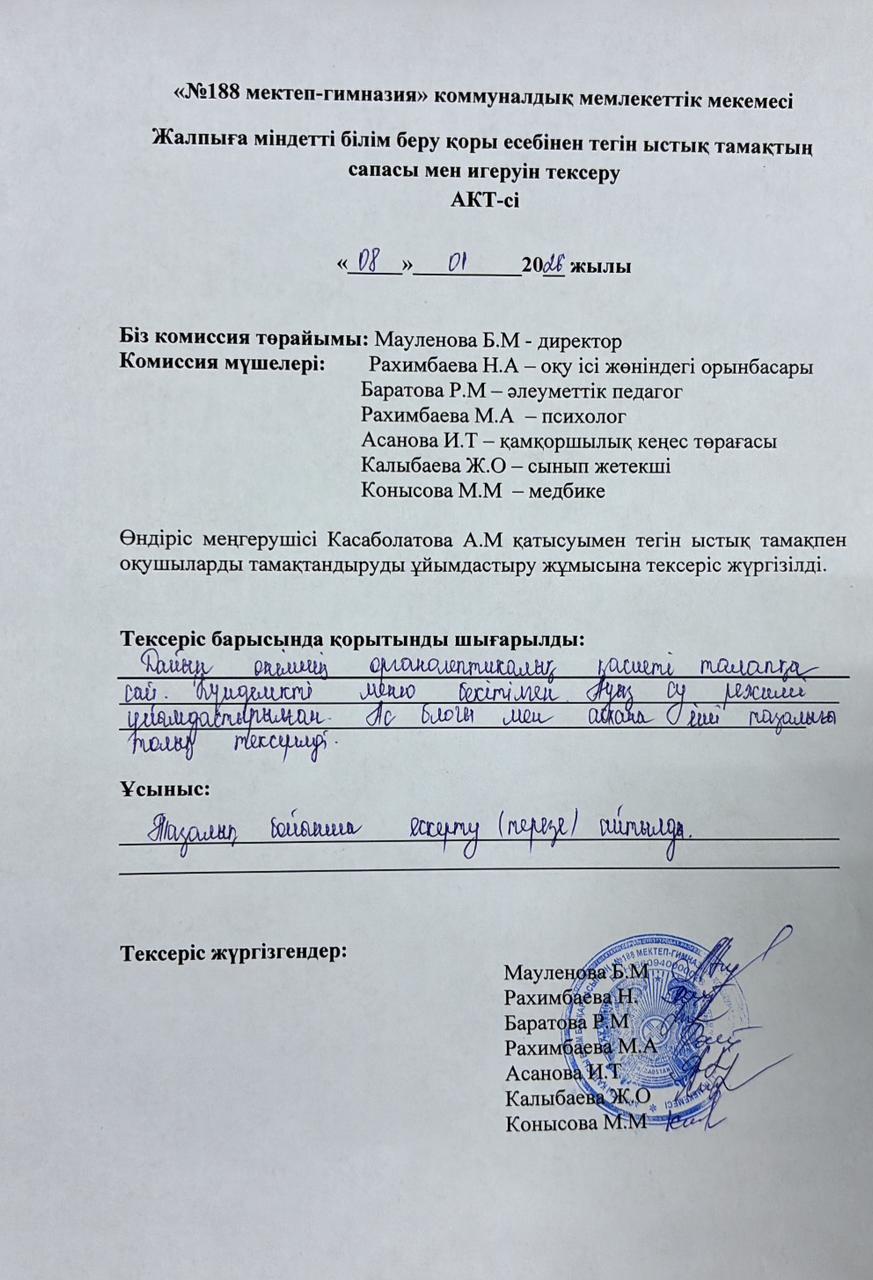 «№188 мектеп-гимназия» коммуналдық мемлекеттік мекемесі
Жалпыға міндетті білім беру қоры есебінен тегін ыстық тамақтың
сапасы мен игеруін тексеру
АКТ-сі
« 08 » 01 2026 жылы
Біз комиссия төрайымы: Мауленова Б.М - директор
Комиссия мүшелері: Рахимбаева Н.А – оқу ісі жөніндегі орынбасары
Баратова Р.М – әлеуметтік педагог
Рахимбаева М.А – психолог
Асанова И.Т – қамқоршылық кеңес төрағасы
Калыбаева Ж.О – сынып жетекші
Конысова М.М – медбике
Өндіріс меңгерушісі Касаболатова А.М қатысуымен тегін ыстық тамақпен
оқушыларды тамақтандыруды ұйымдастыру жұмысына тексеріс жүргізілді.
Тексеріс барысында қорытынды шығарылды:
Дайын өнімнің органолептикалық қасиеті талапқа
сай. Күнделікті меню бекітілген. Ауыз су режимі
ұйымдастырылған. Ас блогы мен асхана іші тазалығы
толық тексерілді.
Ұсыныс:
Тазалық бойынша ескерту (терезе) айтылды.
Тексеріс жүргізгендер:
Мауленова Б.М
Рахимбаева Н.
Баратова Р.М
Рахимбаева М.А
Асанова И.Т
Калыбаева Ж.О
Конысова М.М